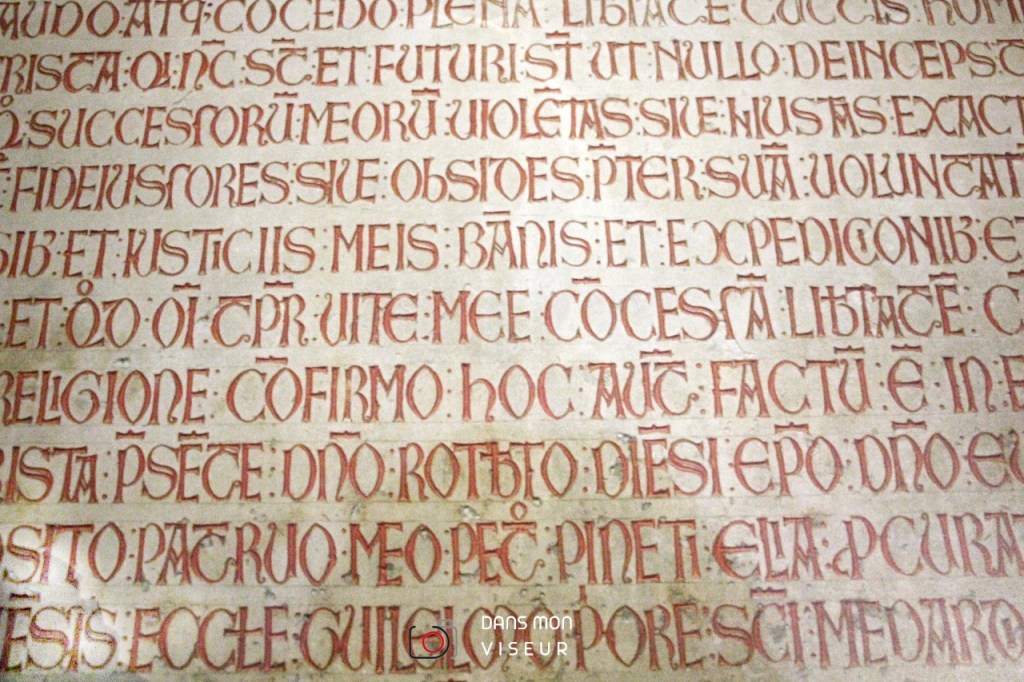 AUDO:ATQ:COCEDO PLENA LIBTATE CUCTIS
RISTA:QI:NC:SCT:ET FUTURI:ST UT NULLO:DEINCEPS:
SUCCESSORU:MEORU:UIOLETAS:SIUE:HIUSTAS:EXACT
FIDEIUSSORES:SIUE:OBSIDES:PTER:SUA:UOLUNTAT
SIB:ET:IUSTICIIS:MEIS:BANIS:ET:EXPEDICONIB:E
ET:QD:OI:TPR:UITE:MEE:COCESSA:LIBTATE:C
RELIGIONE:COFIRMO:HOC:AUT:FACTU:E:IN:E
RISTA:PSETE:DNO:ROTBTO:DIESI:EPO:DNO:EU
SITO:PATRUO:MEO:PET:PINETI:ELIA:PCURA
ESIS:ECCLE:GUILGLOTO:PORE:SCI:MEDARD
DANS MON
VISEUR